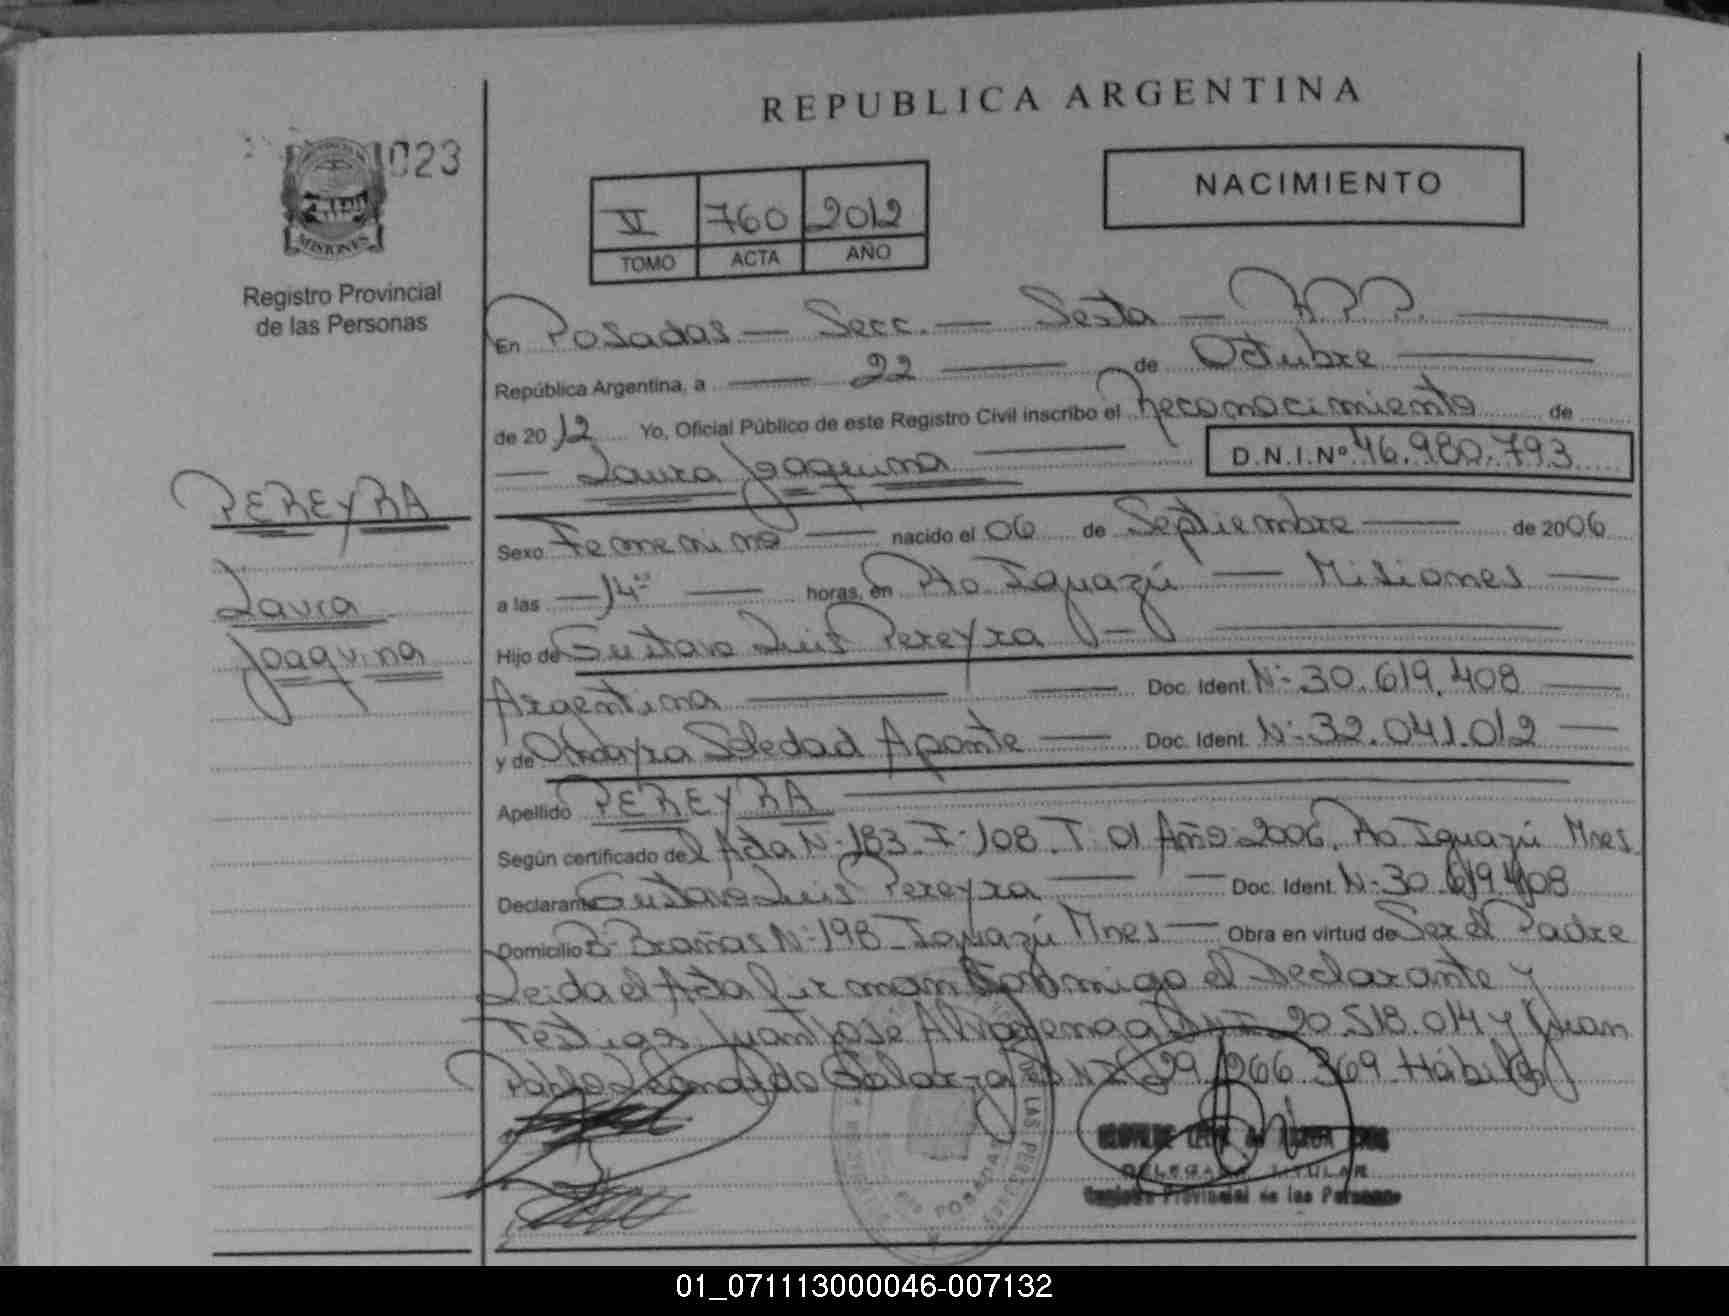 REPUBLICA ARGENTINA
023
NACIMIENTO
VI 760 2012
TOMO ACTA AÑO
MISIONES
Registro Provincial
de las Personas
En Posadas — Secc. — Sexta — R.P.P.
República Argentina, a 22 de Octubre
de 2012 Yo, Oficial Público de este Registro Civil inscribo el Reconocimiento de
Laura Joaquina D.N.I.Nº 46.980.793
PEREYRA
Laura
Joaquina
Sexo Femenino nacido el 06 de Septiembre de 2006
a las 14 horas, en Pto Iguazú — Misiones
Hijo de Gustavo Luis Pereyra
Argentina Doc. Ident. Nº 30.619.408
y de Soledad Aponte Doc. Ident. Nº 32.041.012
Apellido PEREYRA
Según certificado del Acta Nº 183. F: 108. T: 01 Año 2006. Pto Iguazú Mnes.
Declarante Gustavo Luis Pereyra Doc. Ident. Nº 30.619.408
Domicilio Bº Brañas Nº 198 Iguazú Mnes — Obra en virtud de Ser el Padre
Leida el Acta firman conmigo el Declarante y
Testigos Juan José DNI 20.518.014 y Juan
Pablo Leonardo Galarza DNI 29.066.369 Hábiles
LAS PERSONAS
POSADAS
DELEGADA TITULAR
Registro Provincial de las Personas
01_071113000046-007132